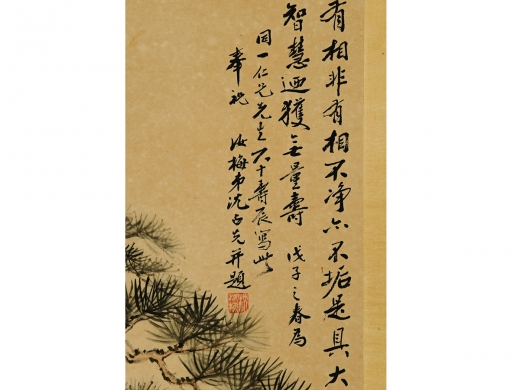 有相非有相不净亦不垢是具大
智慧迺獲無量壽 戊子之春為
同一仁兄先生六十壽辰寫此
奉祝 汝梅弟沈占先并題